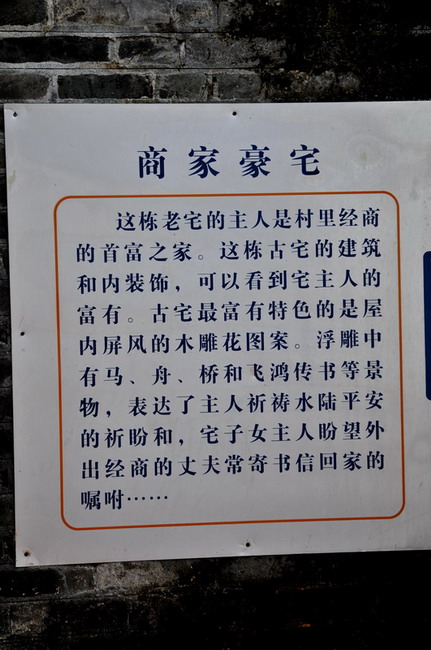 商家豪宅
这栋老宅的主人是村里经商
的首富之家。这栋古宅的建筑
和内装饰，可以看到宅主人的
富有。古宅最富有特色的是屋
内屏风的木雕花图案。浮雕中
有马、舟、桥和飞鸿传书等景
物，表达了主人祈祷水陆平安
的祈盼和，宅子女主人盼望外
出经商的丈夫常寄书信回家的
嘱咐……